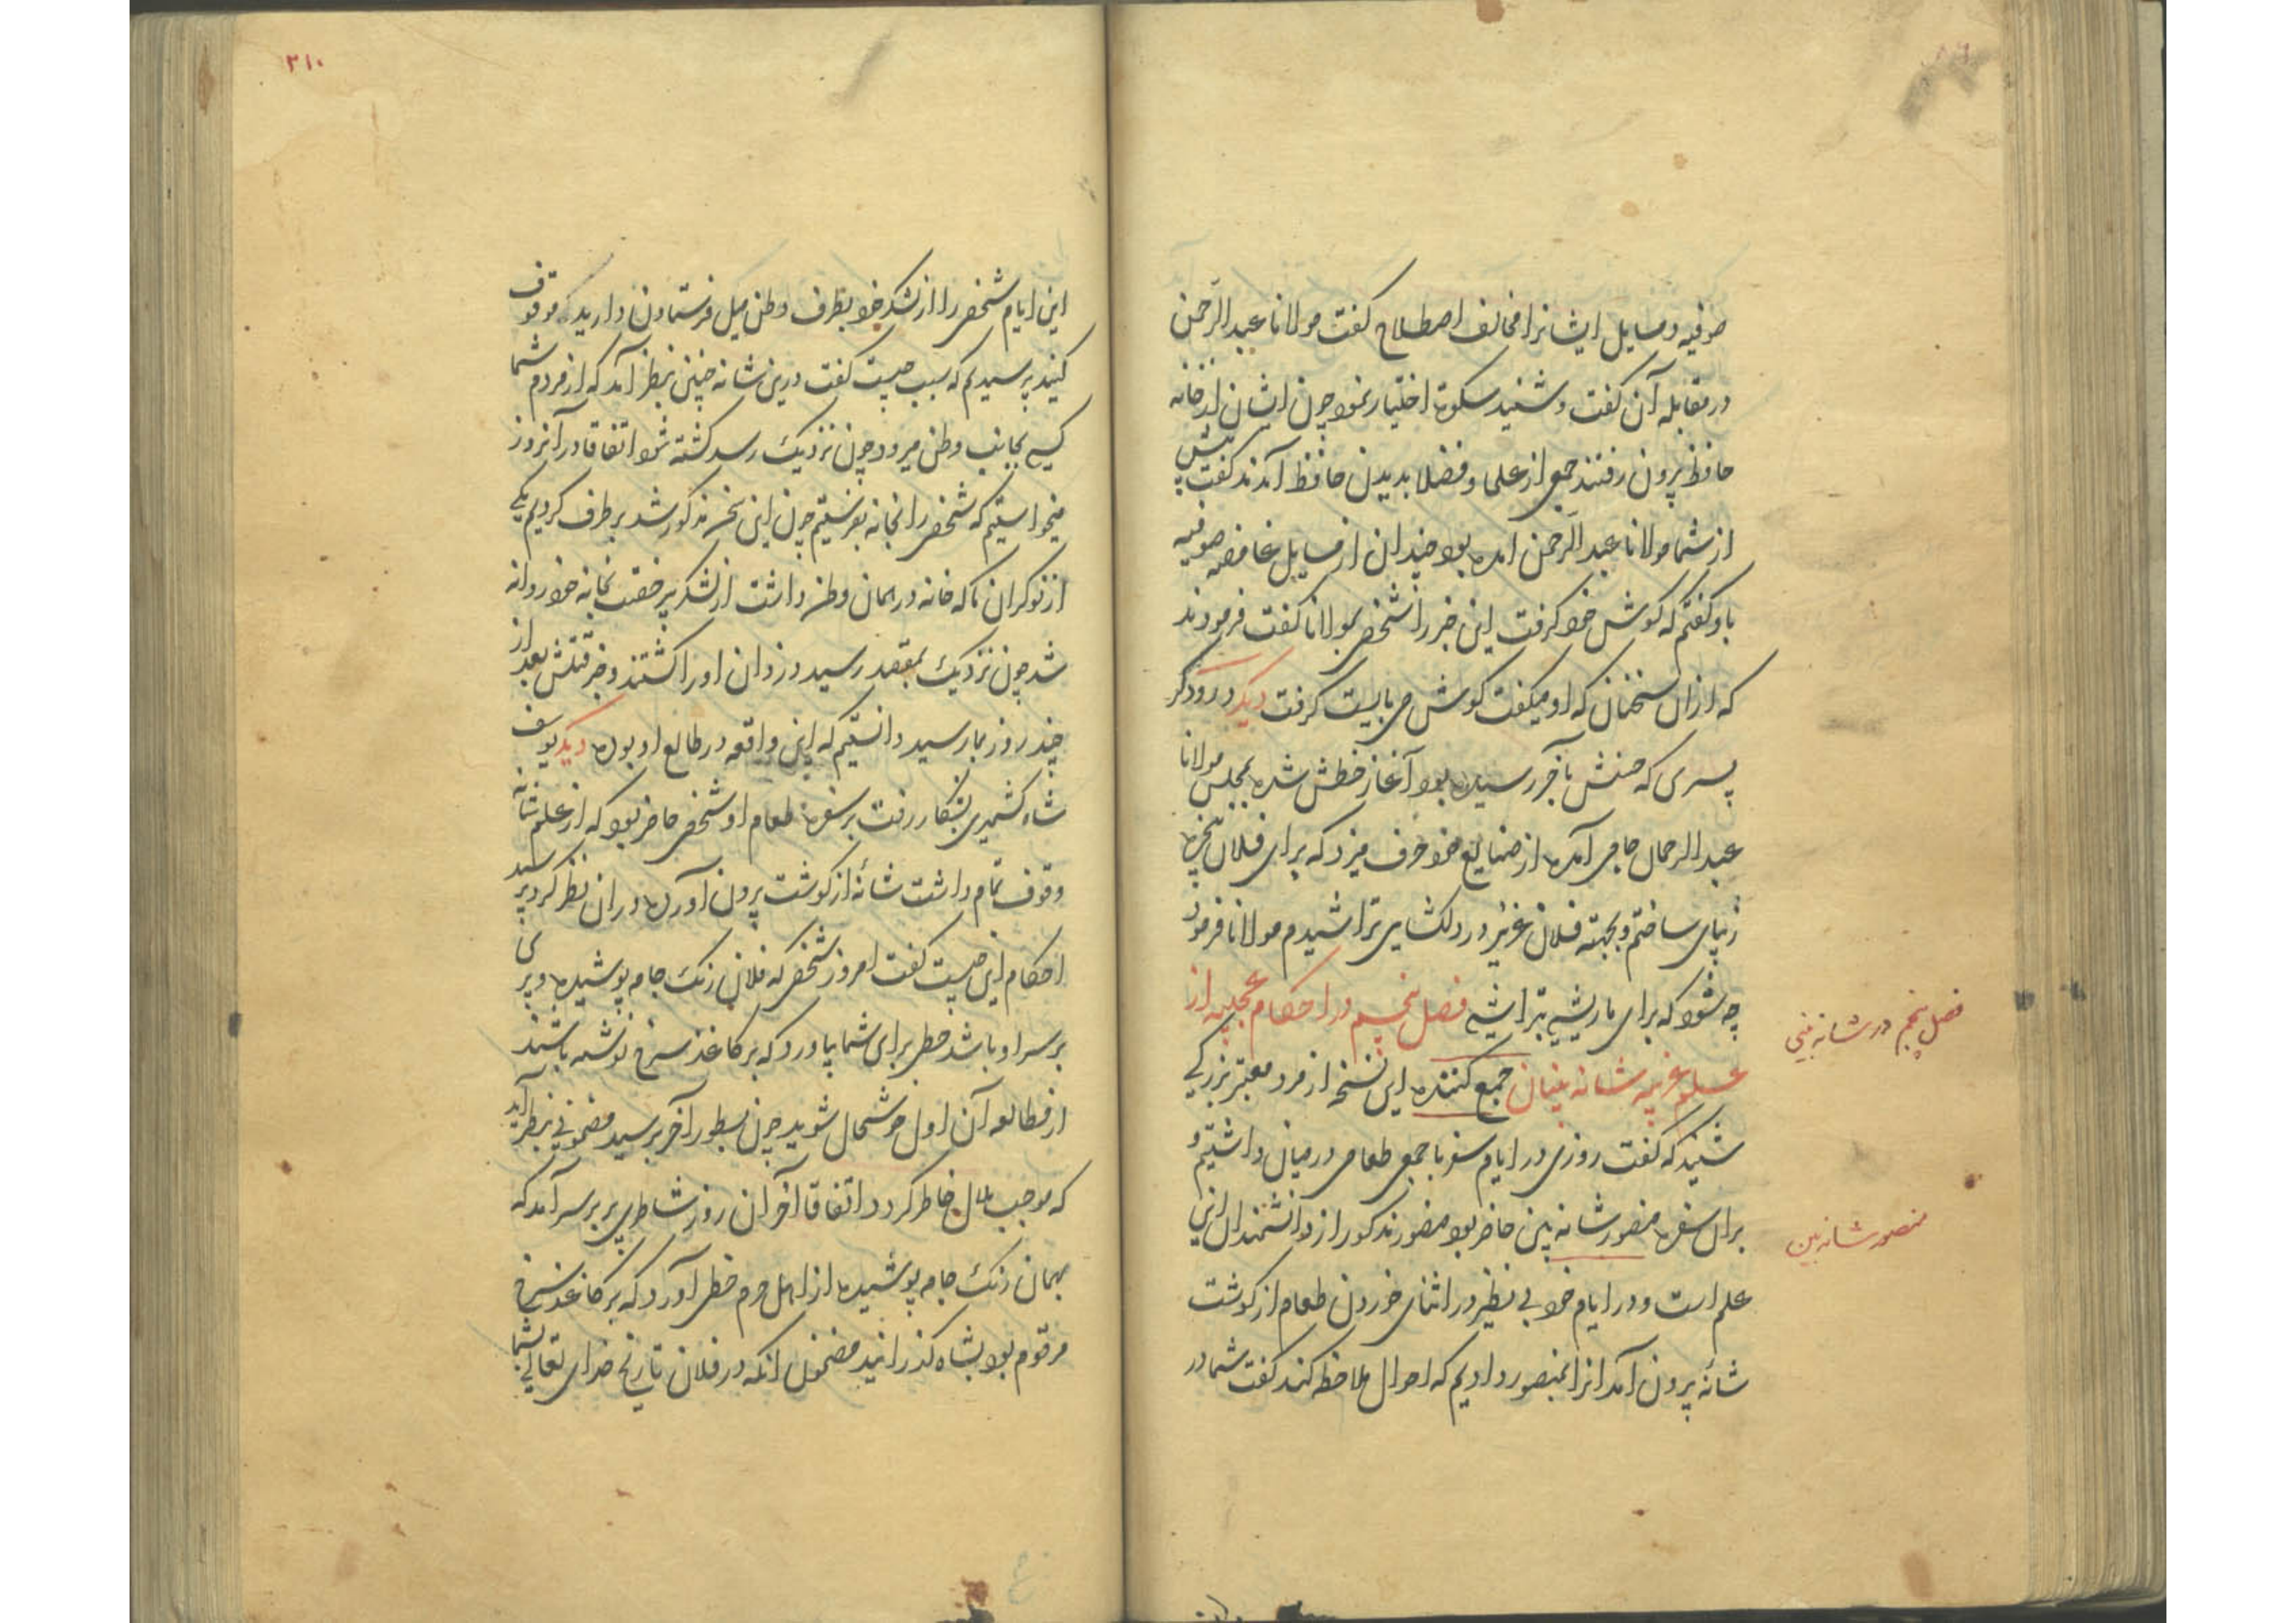 صوفیه و مسایل ایشانرا مخالف اصطلاح گفت مولانا عبد الرحمن
در مقابله آن گفت و شنید سکوت اختیار نمود چون ایشان از خانه
حافظ بیرون رفتند جمعی از علما و فضلا بدیدن حافظ آمدند گفت پیش
از شما مولانا عبد الرحمن آمده بود چندان از مسایل غامضه صوفیه
باو گفتم که گوش خود گرفت این خبر را شخصی بمولانا گفت فرمودند
که ازان سخنان که او میگفت گوش می بایست گرفت دیگر درودگر
پسری که حسنش بآخر رسیده بود آغاز خطش شده بمجلس مولانا
عبد الرحمان جامی آمده از صنایع خود حرف میزد که برای فلان پنجره
زیبای ساختم و بجهته فلان عزیز در دلکشای تراشیدم مولانا فرمود
چه شود که برای ما ریشی بتراشی فصل پنجم در احکام عجیبه از
علم غریبه شانه بینان جمع کننده این نسخه از مرد معتبر بزرگی
شنید که گفت روزی در ایام سفر با جمعی طعامی در میان داشتیم و
بران سفره منصور شانه بین حاضر بود منصور مذکور از دانشمندان این
علم است و در ایام خود بی نظیر در اثنای خوردن طعام از گوشت
شانه بیرون آمد انرا بمنصور دادیم که احوال ملاحظه کند گفت شما در
فصل پنجم در شانه بینی
منصور شانه بین
۳۱۰
این ایام شخصی را از لشکر خود بطرف وطن میل فرستادن دارید موقوف
کنید پرسیدیم که سبب چیست گفت درین شانه چنین بنظر آمد که از مردم شما
کسی بجانب وطن میرود چون نزدیک رسد کشته شود اتفاقا در آنروز
میخواستیم که شخصی را بخانه بفرستیم چون این سخن مذکور شد برطرف کردیم یکی
از نوکران ما که خانه در همان وطن داشت از لشکر بی رخصت بخانه خود روانه
شد چون نزدیک بمقصد رسید دزدان او را کشتند و خبر قتلش بعد از
چند روز بما رسید دانستیم که این واقعه در طالع او بوده دیگر یوسف
شاه کشمیری بشکار رفت بر سفره طعام او شخصی حاضر بود که از علم شانه
وقوف تمام داشت شانه از گوشت بیرون آورده دران نظر کرد پرسید
احکام این چیست گفت امروز شخصی که فلان رنگ جامه پوشیده و پری
بر سر او باشد خطی برای شما بیاورد که بر کاغذ سرخ نوشته باشند
از مطالعه آن اول خوشحال شوید چون بسطور آخر برسید مضمونی بنظر آید
که موجب ملال خاطر گردد اتفاقا آخر آن روز شاطری پر بر سر آمد که
بهمان رنگ جامه پوشیده از اهل حرم خطی آورد که بر کاغذ سرخ
مرقوم بود بشاه گذرانید مضمون انکه در فلان تاریخ خدای تعالی بشما